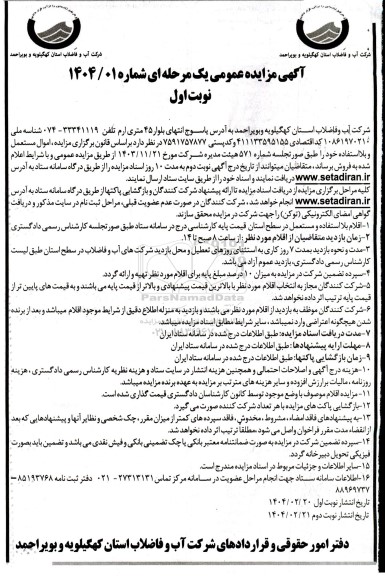 شرکت آب و فاضلاب استان کهگیلویه و بویراحمد
شرکت آب و فاضلاب استان کهگیلویه و بویراحمد
آگهی مزایده عمومی یک مرحله ای شماره ۱۴۰۴/۰۱
نوبت اول
شرکت آب و فاضلاب استان کهگیلویه وبویراحمد به آدرس یاسوج انتهای بلوار ۴۵ متری ارم تلفن ۳۳۳۴۱۱۱۹-۰۷۴ شناسه ملی
۱۰۸۶۱۹۷۰۲۱۰ کد اقتصادی ۴۱۱۱۳۳۵۹۵۱۵۵ وکدپستی ۷۵۹۱۷۵۷۸۷۷ در نظر دارد براساس قانون برگزاری مزایده، اموال مستعمل
و بلااستفاده خود را طبق صورتجلسه شماره ۵۷۱ هیئت مدیره شرکت مورخ ۱۴۰۳/۱۱/۲۱ از طریق مزایده عمومی و با شرایط اعلام
شده به فروش برساند، متقاضیان میتوانند از تاریخ درج آگهی نوبت دوم به مدت ۱۰ روز اسناد مزایده را از طریق درگاه سامانه ستاد به آدرس
www.setadiran.ir دریافت نمایند و اسناد خود را از طریق سایت ستاد ارسال نمایند.
کلیه مراحل برگزاری مزایده از دریافت اسناد مزایده تا ارائه پیشنهاد شرکت کنندگان و بازگشایی پاکتها از طریق درگاه سامانه ستاد به آدرس
www.setadiran.ir انجام خواهد شد، شرکت کنندگان در صورت عدم عضویت قبلی، مراحل ثبت نام در سایت مذکور و دریافت
گواهی امضای الکترونیکی (توکن) را جهت شرکت در مزایده محقق سازند.
۱-اقلام بلااستفاده و مستعمل در سطح استان قیمت پایه کارشناسی درج در سامانه ستاد طبق صورتجلسه کارشناس رسمی دادگستری
۲-زمان بازدید متقاضیان از اقلام مورد نظر: از ساعت ۸ صبح تا ۱۴.
۳-مدت و نحوه بازدید بمدت ۷ روز کاری به استثنای روزهای تعطیل و محل بازدید شرکت های آب و فاضلاب در سطح استان طبق لیست
کارشناس رسمی دادگستری، بازدید عموم آزاد می باشد.
۴-سپرده تضمین شرکت در مزایده به میزان ۱۰ درصد مبلغ پایه برای اقلام مورد نظر تهیه و ارائه گردد.
۵-شرکت کنندگان مجاز به انتخاب اقلام مورد نظر با بالاترین قیمت پیشنهادی و بالاتر از قیمت پایه می باشند و به قیمت های پایین تر از
قیمت پایه ترتیب اثر داده نخواهد شد.
۶-شرکت کنندگان موظف به بازدید از اقلام مورد نظر می باشند و بازدید به منزله اطلاع دقیق از شرایط موجود اقلام میباشد و بعد از برنده
شدن هیچگونه اعتراضی وارد نمیباشد، سایر شرایط مطابق اسناد مزایده میباشد.
۷-مدت دریافت اسناد مزایده: طبق اطلاعات درج شده در سامانه ستاد ایران
۸-مهلت ارایه پیشنهادها: طبق اطلاعات درج شده در سامانه ستاد ایران
۹-زمان بازگشایی پاکتها: طبق اطلاعات درج شده در سامانه ستاد ایران
۱۰-هزینه درج آگهی و اصلاحات احتمالی و همچنین هزینه انتشار در سایت ستاد و هزینه نظریه کارشناس رسمی دادگستری، هزینه
روزنامه، مالیات برارزش افزوده و سایر هزینه های مترتب بر مزایده به عهده برنده مزایده میباشد.
۱۱-مزایده اقلام موصوف با وضع موجود توسط کانون کارشناسان دادگستری قیمت گذاری شده است.
۱۲-بازگشایی پاکت های مزایده با هر تعداد شرکت کننده صورت می گیرد.
۱۳-به پیشنهادهای فاقد امضاء، مشروط، مخدوش، فاقد سپرده های کمتر از میزان مقرر، چک شخصی و نظایر آنها و پیشنهادهایی که بعد
از انقضاء مدت مقرر فراخوان واصل می شود مطلقا ترتیب اثر داده نخواهد شد.
۱۴-سپرده تضمین شرکت در مزایده به صورت ضمانتنامه معتبر بانکی یا چک تضمینی بانکی و فیش نقدی می باشد و تضمین باید بصورت
فیزیکی تحویل دبیرخانه گردد.
۱۵-سایر اطلاعات و جزئیات مربوط در اسناد مزایده مندرج است.
۱۶-اطلاعات سامانه ستاد جهت انجام مراحل عضویت در سامانه مرکز تماس ۲۷۳۱۳۱۳۱-۰۲۱ دفتر ثبت نامه ۸۵۱۹۳۷۶۸-
۸۸۹۶۹۷۳۷
تاریخ انتشار نوبت اول ۱۴۰۴/۰۲/۲۰
تاریخ انتشار نوبت دوم ۱۴۰۴/۰۲/۲۱
دفتر امور حقوقی و قراردادهای شرکت آب و فاضلاب استان کهگیلویه و بویراحمد